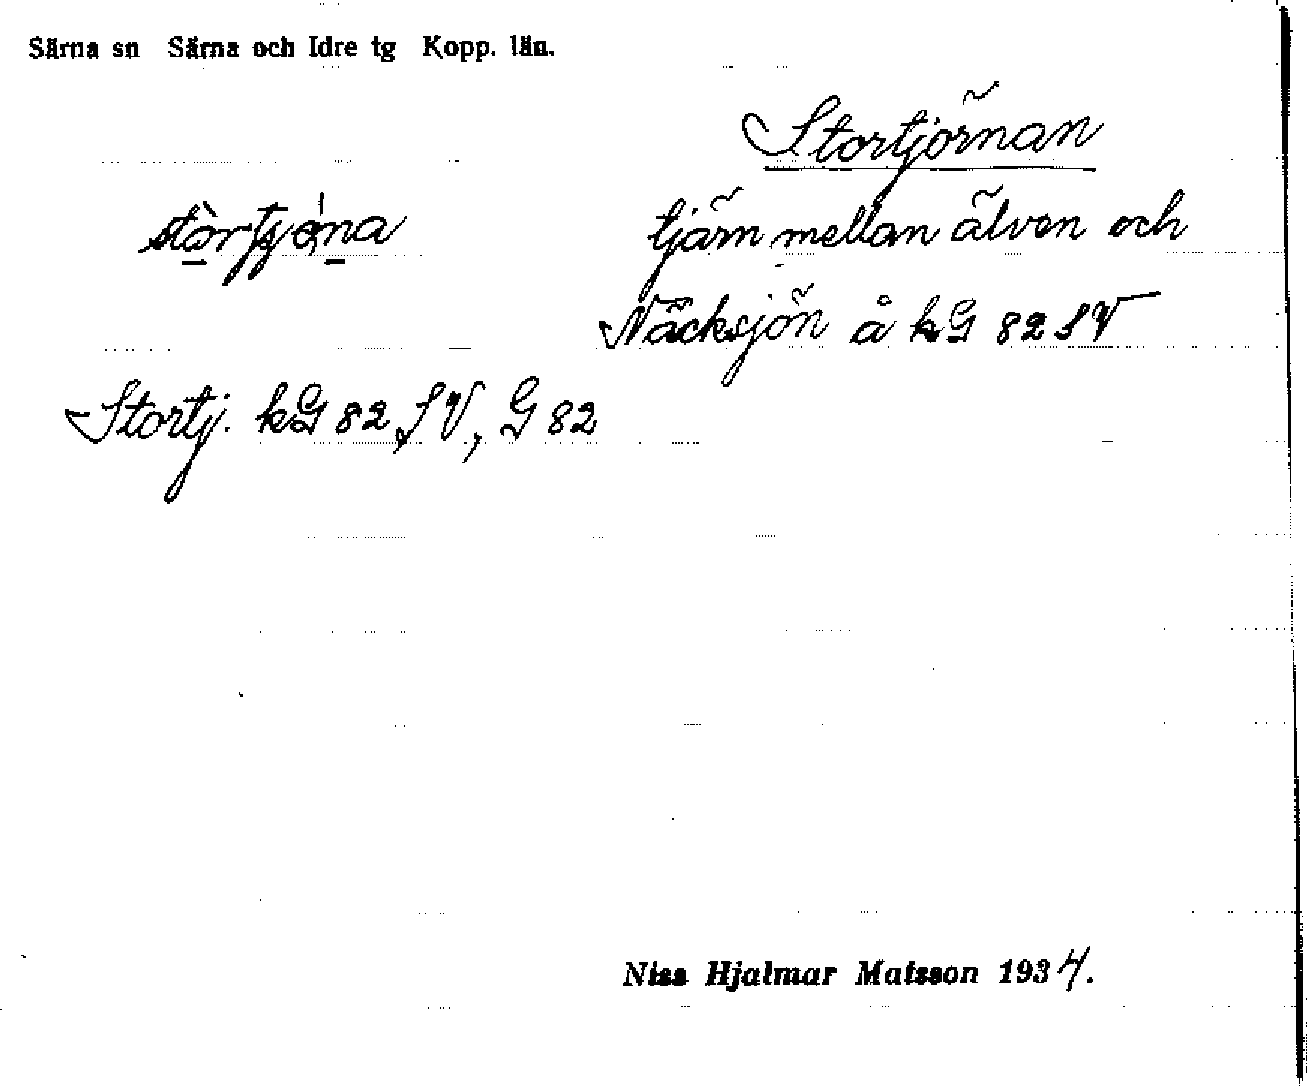 Särna sn Särna och Idre tg Kopp. län.
Stortjörnan
tjärn mellan älven och
Näcksjön å kG 82 SV
Stortj. kG 82 SV, G 82
Niss Hjalmar Matsson 1934.